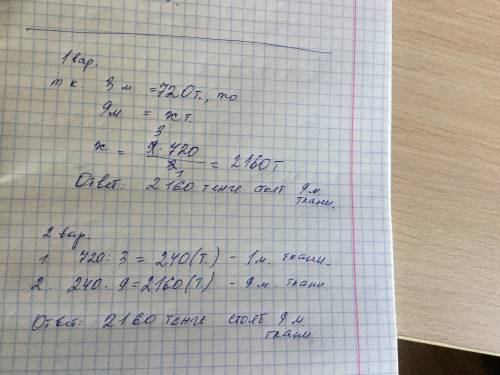 1 вар.
т к 3 м = 720 т., то
9 м = х т.
х = 9 · 720 / 3 = 2160 т
3
1
Ответ: 2160 тенге стоят 9 м.
ткани.
2 вар.
1. 720 : 3 = 240 (т.) - 1 м. ткани.
2. 240 · 9 = 2160 (т) - 9 м. ткани
Ответ: 2160 тенге стоят 9 м
ткани.